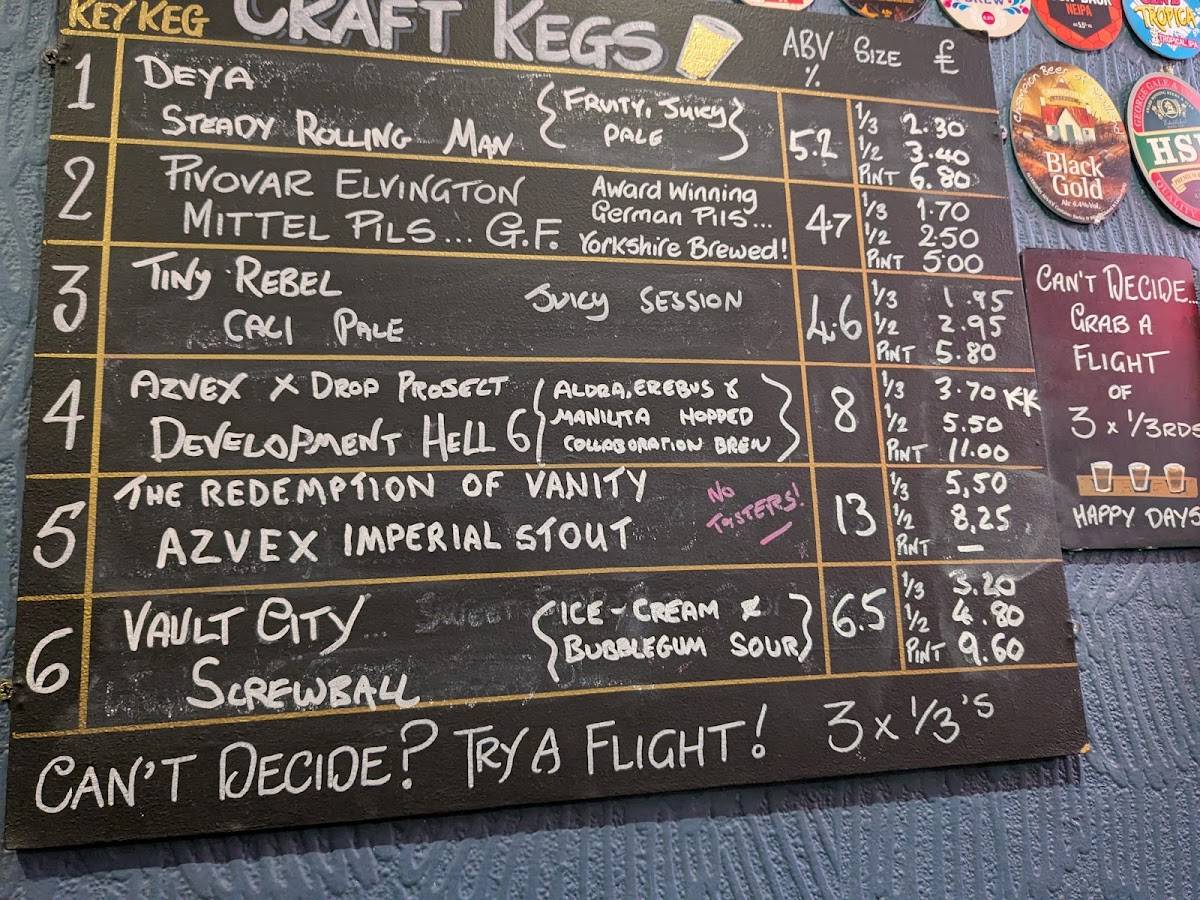 KEY KEG CRAFT KEGS ABV % SIZE £
1 DEYA
STEADY ROLLING MAN
{FRUITY, JUICY
PALE}
5.2
1/3 2.30
1/2 3.40
PINT 6.80
2 PIVOVAR ELVINGTON
MITTEL PILS... G.F.
Award Winning
German Pils...
Yorkshire Brewed!
4.7
1/3 1.70
1/2 2.50
PINT 5.00
3 TINY REBEL
CALI PALE
JUICY SESSION
4.6
1/3 1.95
1/2 2.95
PINT 5.80
4 AZVEX X DROP PROJECT
DEVELOPMENT HELL 6
{ALDRA, EREBUS &
MANILITA HOPPED
COLLABORATION BREW}
8
1/3 3.70 KK
1/2 5.50
PINT 11.00
5 THE REDEMPTION OF VANITY
AZVEX IMPERIAL STOUT
NO
TASTERS!
13
1/3 5.50
1/2 8.25
PINT —
6 VAULT CITY...
SCREWBALL
{ICE-CREAM &
BUBBLEGUM SOUR}
6.5
1/3 3.20
1/2 4.80
PINT 9.60
CAN'T DECIDE? TRY A FLIGHT! 3 x 1/3's
NEIPA
TROPICA
TROPICAL IPA
Champion Beer of
Black
Gold
GEORGE GALE &
HS
CAN'T DECIDE...
GRAB A
FLIGHT
OF
3 x 1/3RDS
HAPPY DAYS